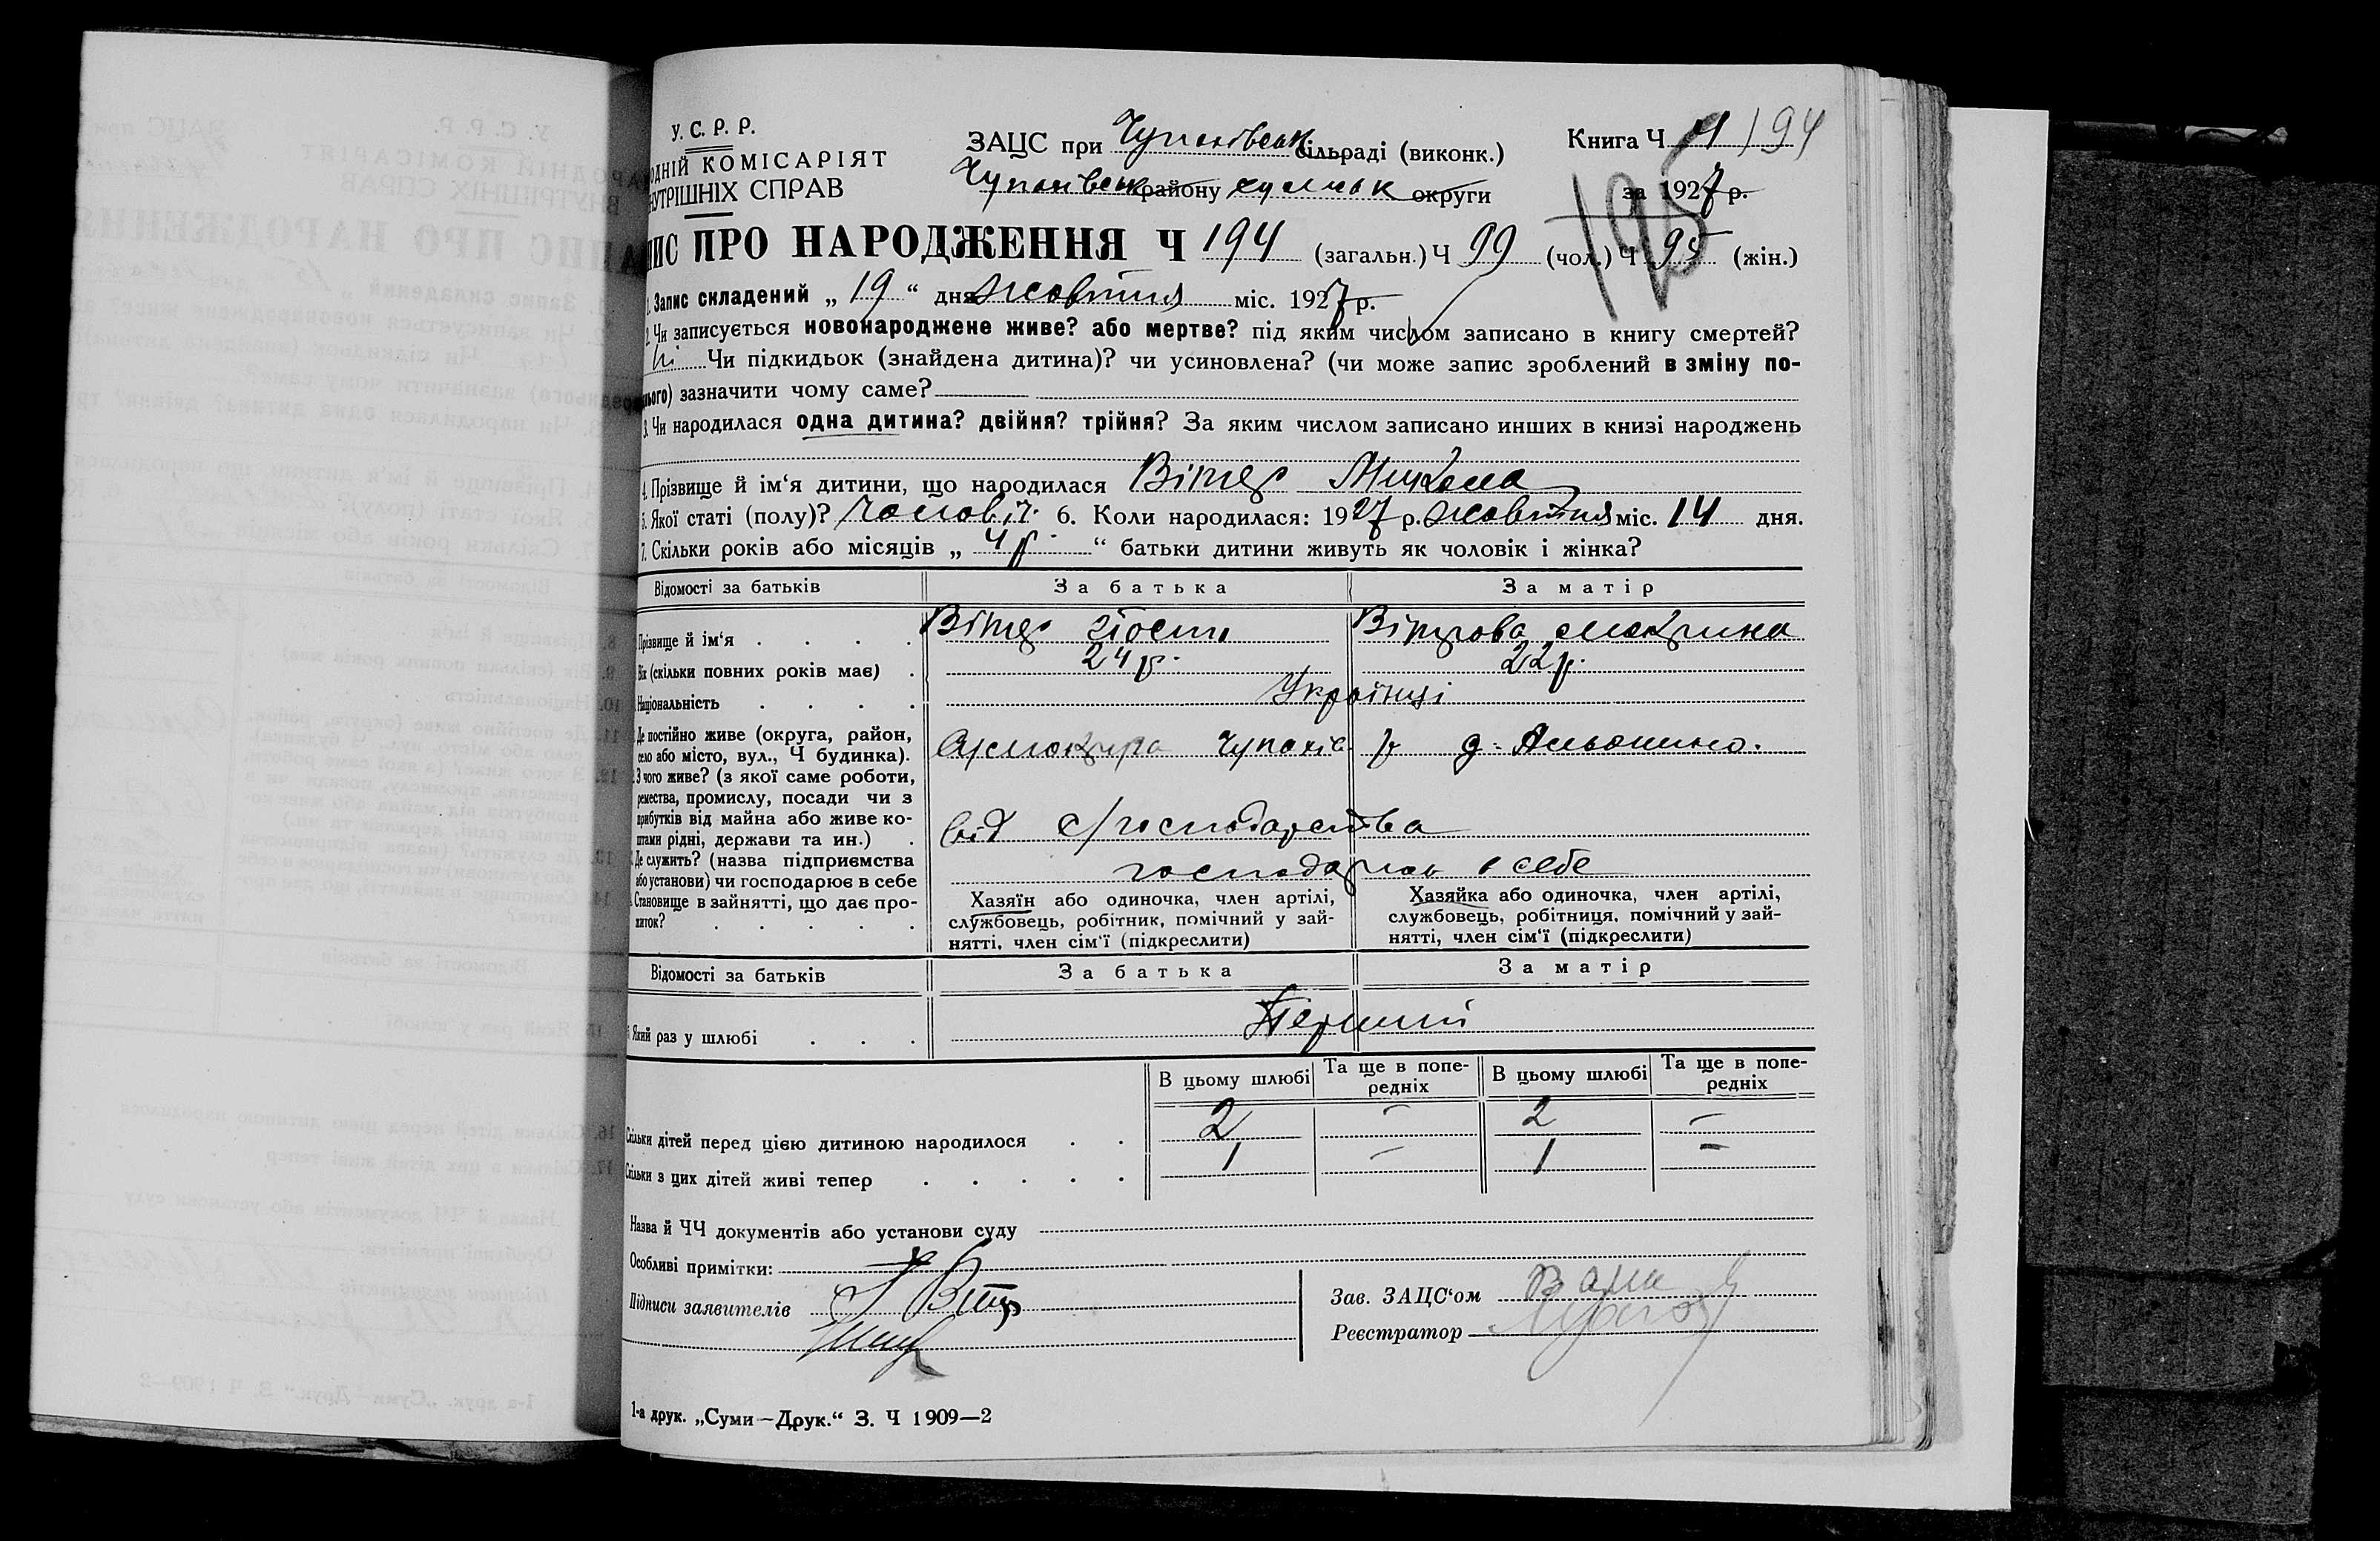 У. С. Р. Р.
ОДНІЙ КОМІСАРІЯТ
НУТРІШНІХ СПРАВ
ЗАЦС при Чупахівськ сільраді (виконк.)
Чупахівськ району сумськ округи
Книга Ч 4 194
за 1927 р.
195
ПИС ПРО НАРОДЖЕННЯ Ч 194 (загальн.) Ч 99 (чол.) Ч 95 (жін.)
1. Запис складений „ 19 “ дня жовтня міс. 1927 р.
2. Чи записується новонароджене живе? або мертве? під яким числом записано в книгу смертей?
ні Чи підкидьок (знайдена дитина)? чи усиновлена? (чи може запис зроблений в зміну по-
нього) зазначити чому саме?
3. Чи народилася одна дитина? двійня? трійня? За яким числом записано инших в книзі народжень
4. Прізвище й ім‘я дитини, що народилася Вітер Микола
5. Якої статі (полу)? чоловіч. 6. Коли народилася: 1927 р. жовтня міс. 14 дня.
7. Скільки років або місяців „ 4 р. “ батьки дитини живуть як чоловік і жінка?
Відомості за батьків За батька За матір
Прізвище й ім‘я . . . . Вітер Йосип Вітрова Мокрина
Вік (скільки повних років має) . 24 р. 22 р.
Національність . . . . Українці
Де постійно живе (округа, район,
село або місто, вул., Ч будинка). Чупахів р д. Альошино.
З чого живе? (з якої саме роботи,
ремества, промислу, посади чи з
прибутків від майна або живе ко-
штами рідні, держави та ин.) . від с/господарства
Де служить? (назва підприємства
або установи) чи господарює в себе господарює в себе
Становище в зайнятті, що дає про-
житок? . . . . .
Хазяїн або одиночка, член артілі,
службовець, робітник, помічний у зай-
нятті, член сім‘ї (підкреслити)
Хазяйка або одиночка, член артілі,
службовець, робітниця, помічний у зай-
нятті, член сім‘ї (підкреслити)
Відомості за батьків За батька За матір
Який раз у шлюбі . . . Перший
В цьому шлюбі Та ще в попе-редніх В цьому шлюбі Та ще в попе-редніх
Скільки дітей перед цією дитиною народилося . . 2 – 2 –
Скільки з цих дітей живі тепер . . . . . 1 – 1 –
Назва й ЧЧ документів або установи суду
Особливі примітки:
Підписи заявителів Вітер
Зав. ЗАЦС‘ом
Реєстратор
1-а друк. „Суми—Друк.“ З. Ч 1909—2